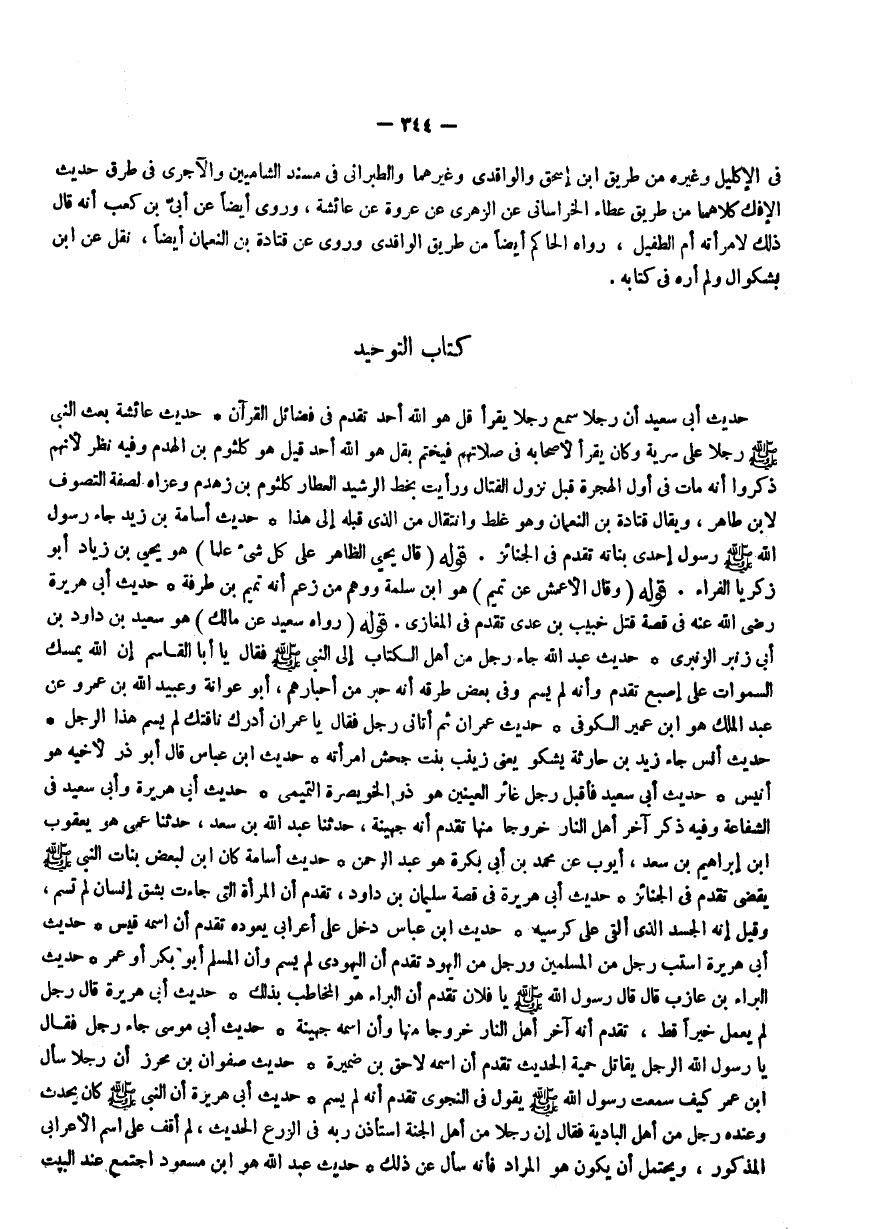 — ٣٤٤ —
فى الإكليل وغيره من طريق ابن إسحق والواقدى وغيرهما والطبرانى فى مسند الشاميين والآجرى فى طرق حديث
الإفك كلاهما من طريق عطاء الخراسانى عن الزهرى عن عروة عن عائشة ، وروى أيضاً عن أبىّ بن كعب أنه قال
ذلك لامرأته أم الطفيل ، رواه الحاكم أيضاً من طريق الواقدى وروى عن قتادة بن النعمان أيضاً ، نقل عن ابن
بشكوال ولم أره فى كتابه .
كتاب التوحيد
حديث أبى سعيد أن رجلا سمع رجلا يقرأ قل هو الله أحد تقدم فى فضائل القرآن * حديث عائشة بعث النبى
ﷺ رجلا على سرية وكان يقرأ لأصحابه فى صلاتهم فيختم بقل هو الله أحد قيل هو كلثوم بن الهدم وفيه نظر لأنهم
ذكروا أنه مات فى أول الهجرة قبل نزول القتال ورأيت بخط الرشيد العطار كلثوم بن زهدم وعزاه لصفة التصوف
لابن طاهر ، ويقال قتادة بن النعمان وهو غلط وانتقال من الذى قبله إلى هذا * حديث أسامة بن زيد جاء رسول
الله ﷺ رسول إحدى بناته تقدم فى الجنائز . قوله ( قال يحيى الظاهر على كل شىء علما ) هو يحيى بن زياد أبو
زكريا الفراء . قوله ( وقال الأعمش عن تميم ) هو ابن سلمة ووهم من زعم أنه تميم بن طرفة * حديث أبى هريرة
رضى الله عنه فى قصة قتل خبيب بن عدى تقدم فى المغازى . قوله ( رواه سعيد عن مالك ) هو سعيد بن داود بن
أبى زنبر الزنبرى * حديث عبد الله جاء رجل من أهل الكتاب إلى النبى ﷺ فقال يا أبا القاسم إن الله يمسك
السموات على إصبع تقدم وأنه لم يسم وفى بعض طرقه أنه حبر من أحبارهم ، أبو عوانة وعبيد الله بن عمرو عن
عبد الملك هو ابن عمير الكوفى * حديث عمران ثم أتانى رجل فقال يا عمران أدرك ناقتك لم يسم هذا الرجل *
حديث أنس جاء زيد بن حارثة يشكو يعنى زينب بنت جحش امرأته * حديث ابن عباس قال أبو ذر لأخيه هو
أنيس * حديث أبى سعيد فأقبل رجل غائر العينين هو ذو الخويصرة التميمى * حديث أبى هريرة وأبى سعيد فى
الشفاعة وفيه ذكر آخر أهل النار خروجا منها تقدم أنه جهينة ، حدثنا عبد الله بن سعد ، حدثنا عمى هو يعقوب
ابن إبراهيم بن سعد ، أيوب عن محمد بن أبى بكرة هو عبد الرحمن * حديث أسامة كان ابن لبعض بنات النبى ﷺ
يقضى تقدم فى الجنائز * حديث أبى هريرة فى قصة سليمان بن داود ، تقدم أن المرأة التى جاءت بشق إنسان لم تسم ،
وقيل إنه الجسد الذى ألقى على كرسيه * حديث ابن عباس دخل على أعرابى يعوده تقدم أن اسمه قيس * حديث
أبى هريرة استب رجل من المسلمين ورجل من اليهود تقدم أن اليهودى لم يسم وأن المسلم أبو بكر أو عمر * حديث
البراء بن عازب قال قال رسول الله ﷺ يا فلان تقدم أن البراء هو المخاطب بذلك * حديث أبى هريرة قال رجل
لم يعمل خيراً قط ، تقدم أنه آخر أهل النار خروجا منها وأن اسمه جهينة * حديث أبى موسى جاء رجل فقال
يا رسول الله الرجل يقاتل حمية الحديث تقدم أن اسمه لاحق بن ضميرة * حديث صفوان بن محرز أن رجلا سأل
ابن عمر كيف سمعت رسول الله ﷺ يقول فى النجوى تقدم أنه لم يسم * حديث أبى هريرة أن النبى ﷺ كان يحدث
وعنده رجل من أهل البادية فقال إن رجلا من أهل الجنة استأذن ربه فى الزرع الحديث ، لم أقف على اسم الأعرابى
المذكور ، ويحتمل أن يكون هو المراد فأنه سأل عن ذلك * حديث عبد الله هو ابن مسعود اجتمع عند البيت